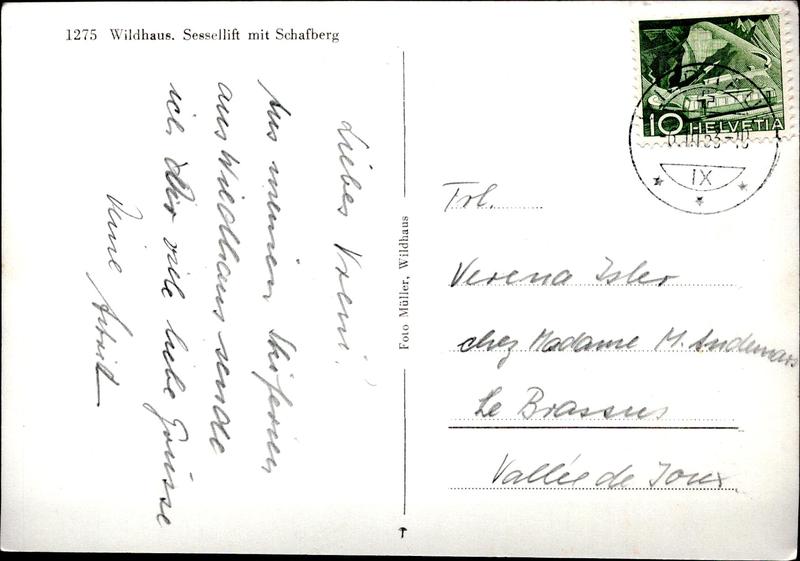 1275 Wildhaus. Sessellift mit Schafberg
Liebes Vreni!
Aus meinen Skiferien
aus Wildhaus sende
ich Dir viele liebe Grüsse
Deine Astrid
Foto Müller, Wildhaus
10 HELVETIA
IX
Frl.
Verena Isler
chez Madame M. Andemars
Le Brassus
Vallée de Joux